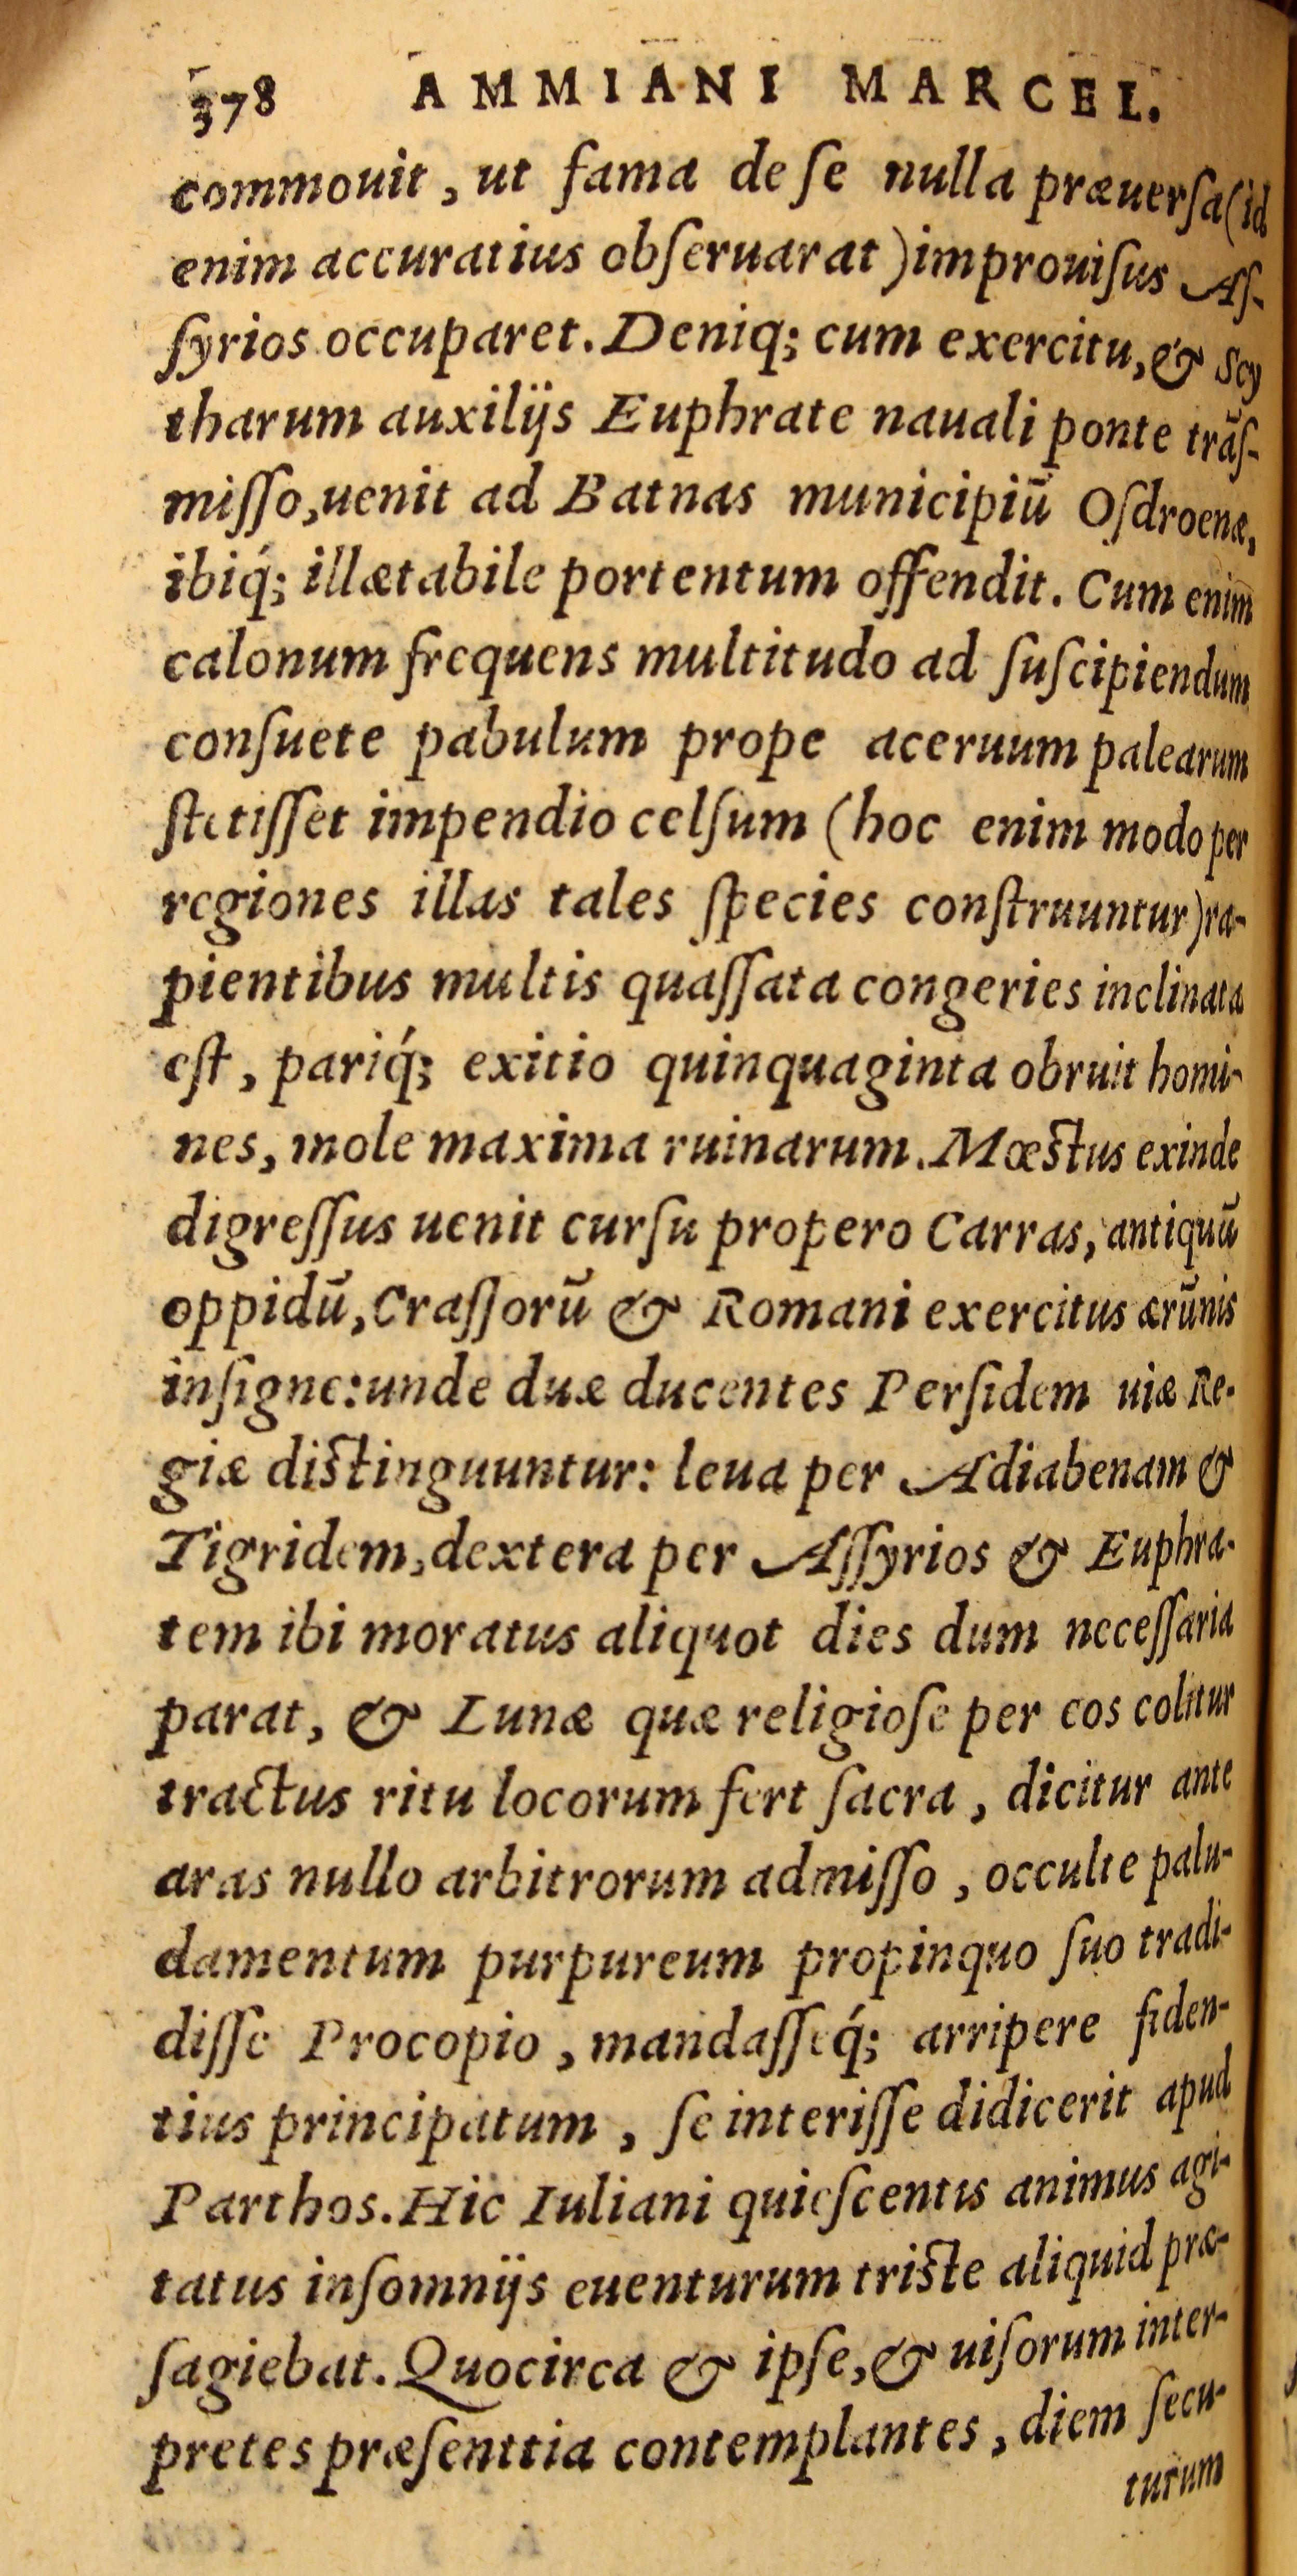 378 AMMIANI MARCEL.
commouit, ut fama de ſe nulla præuerſa (id
enim accuratius obſeruarat) improuiſus Aſ-
ſyrios occuparet. Deniq; cum exercitu, & Scy
tharum auxilijs Euphrate nauali ponte trãſ-
miſſo, uenit ad Batnas municipiũ Oſdroenæ,
ibiq́; illætabile portentum offendit. Cum enim
calonum frequens multitudo ad ſuſcipiendum
conſuete pabulum prope aceruum palearum
ſtetiſſet impendio celſum (hoc enim modo per
regiones illas tales ſpecies conſtruuntur) ra-
pientibus multis quaſſata congeries inclinata
eſt, pariq́; exitio quinquaginta obruit homi-
nes, mole maxima ruinarum. Mœstus exinde
digreſſus uenit curſu propero Carras, antiquũ
oppidũ, Craſſorũ & Romani exercitus ærũnis
inſigne: unde duæ ducentes Perſidem uiæ Re-
giæ distinguuntur: leua per Adiabenam &
Tigridem, dextera per Aſſyrios & Euphra-
tem ibi moratus aliquot dies dum neceſſaria
parat, & Lunæ quæ religioſe per eos colitur
tractus ritu locorum fert ſacra, dicitur ante
aras nullo arbitrorum admiſſo, occulte palu-
damentum purpureum propinquo ſuo tradi-
diſſe Procopio, mandaſſeq́; arripere fiden-
tius principatum, ſe interiſſe didicerit apud
Parthos. Hic Iuliani quieſcentis animus agi-
tatus inſomnijs euenturum triste aliquid præ-
ſagiebat. Quocirca & ipſe, & uiſorum inter-
pretes præſenttia contemplantes, diem ſecu-
turum